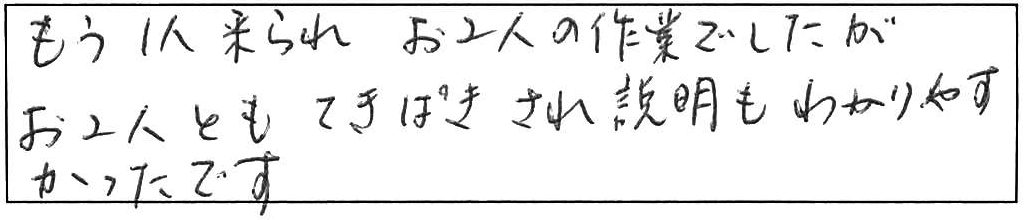 もう1人来られ お2人の作業でしたが
お2人とも てきぱき され 説明も わかりやす
かったです